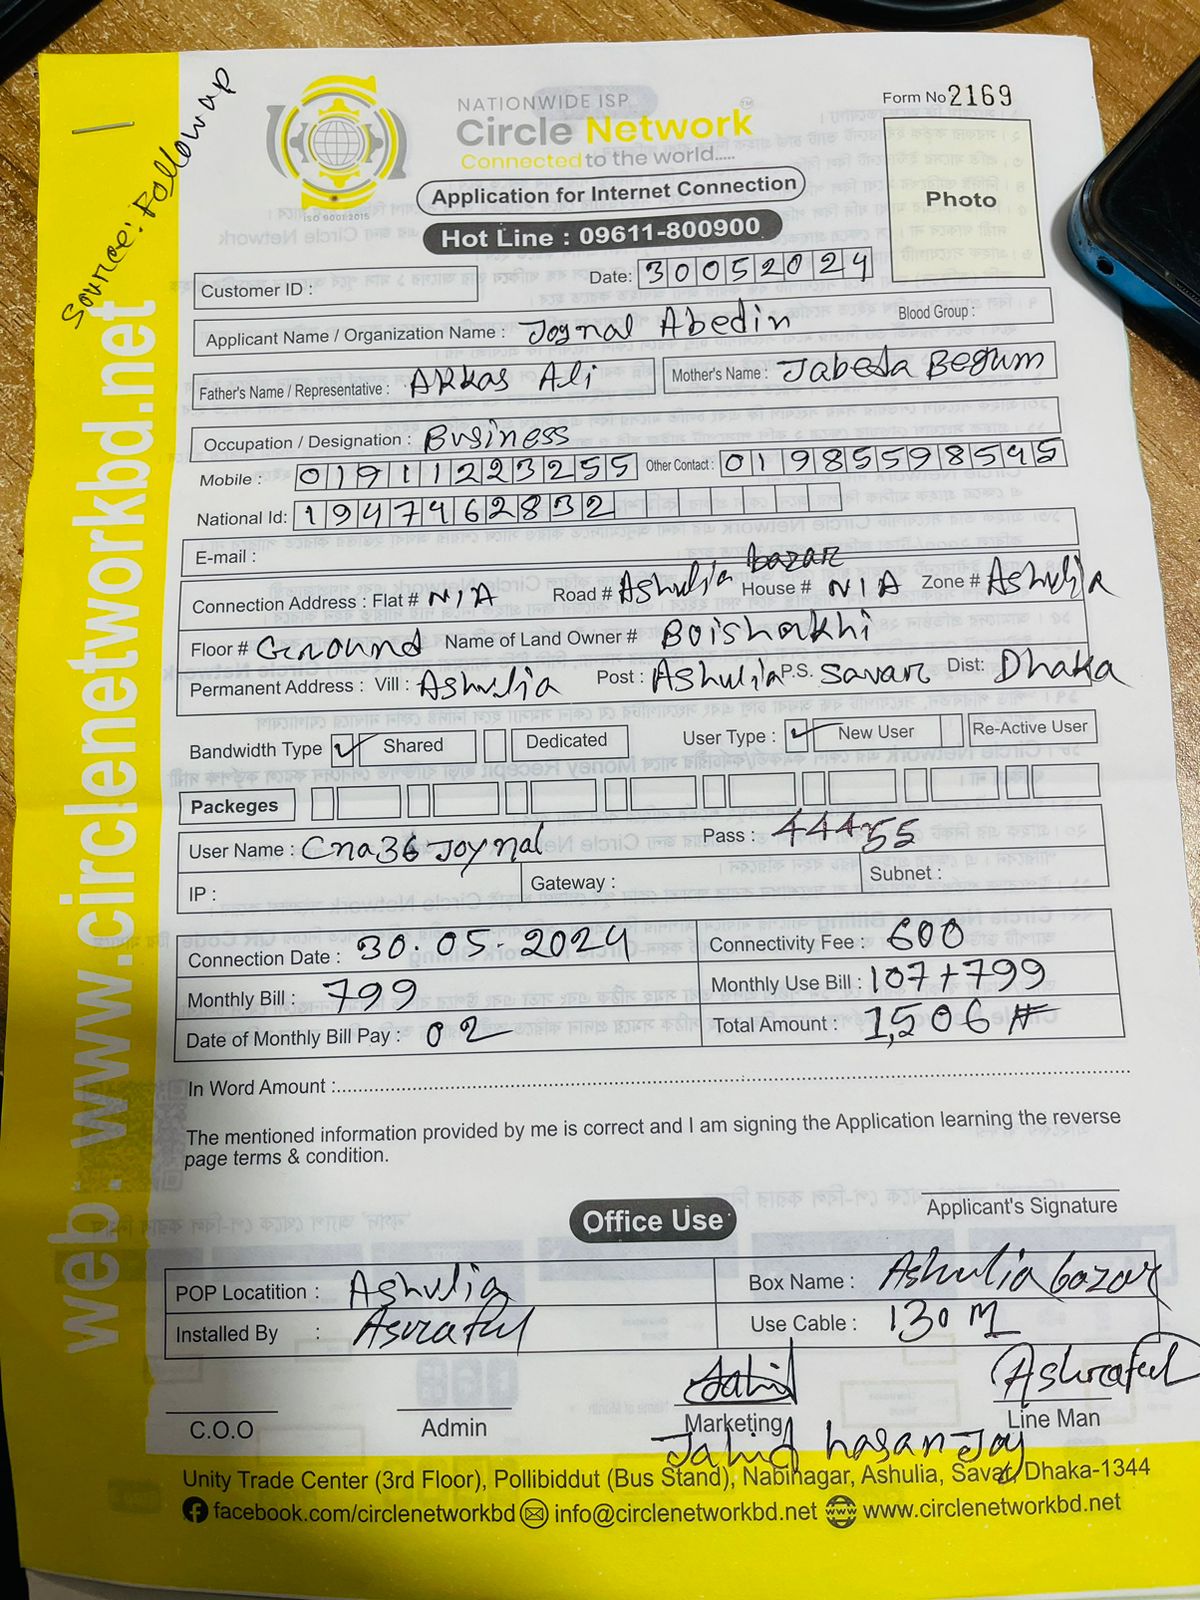 Source: Followap
NATIONWIDE ISP
Circle Network™
Connected to the world.....
ISO 9001:2015
Application for Internet Connection
Hot Line : 09611-800900
Form No 2169
Photo
Date: 30052024
Customer ID :
Applicant Name / Organization Name : Joynal Abedin Blood Group :
Father's Name / Representative : Akkas Ali Mother's Name : Jabeda Begum
Occupation / Designation : Business
Mobile : 01911223255 Other Contact : 01985598545
National Id: 1947462832
E-mail :
Connection Address : Flat # N/A Road # Ashulia bazar House # N/A Zone # Ashulia
Floor # Ground Name of Land Owner # Boishakhi
Permanent Address : Vill : Ashulia Post : Ashulia P.S. Savar Dist: Dhaka
Bandwidth Type ✓ Shared Dedicated User Type : ✓ New User Re-Active User
Packeges
User Name : Cna36-Joynal Pass : 44455
IP : Gateway : Subnet :
Connection Date : 30.05.2024 Connectivity Fee : 600
Monthly Bill : 799 Monthly Use Bill : 107+799
Date of Monthly Bill Pay : 02 Total Amount : 1,506 #
In Word Amount :
The mentioned information provided by me is correct and I am signing the Application learning the reverse
page terms & condition.
Applicant's Signature
Office Use
POP Locatition : Ashulia Box Name : Ashulia bazar
Installed By : Asraful Use Cable : 130 M
Jahid Ashraful
C.O.O Admin Marketing Line Man
Jahid hasan Joy
Unity Trade Center (3rd Floor), Pollibiddut (Bus Stand), Nabinagar, Ashulia, Savar, Dhaka-1344
facebook.com/circlenetworkbd info@circlenetworkbd.net www.circlenetworkbd.net
web : www.circlenetworkbd.net